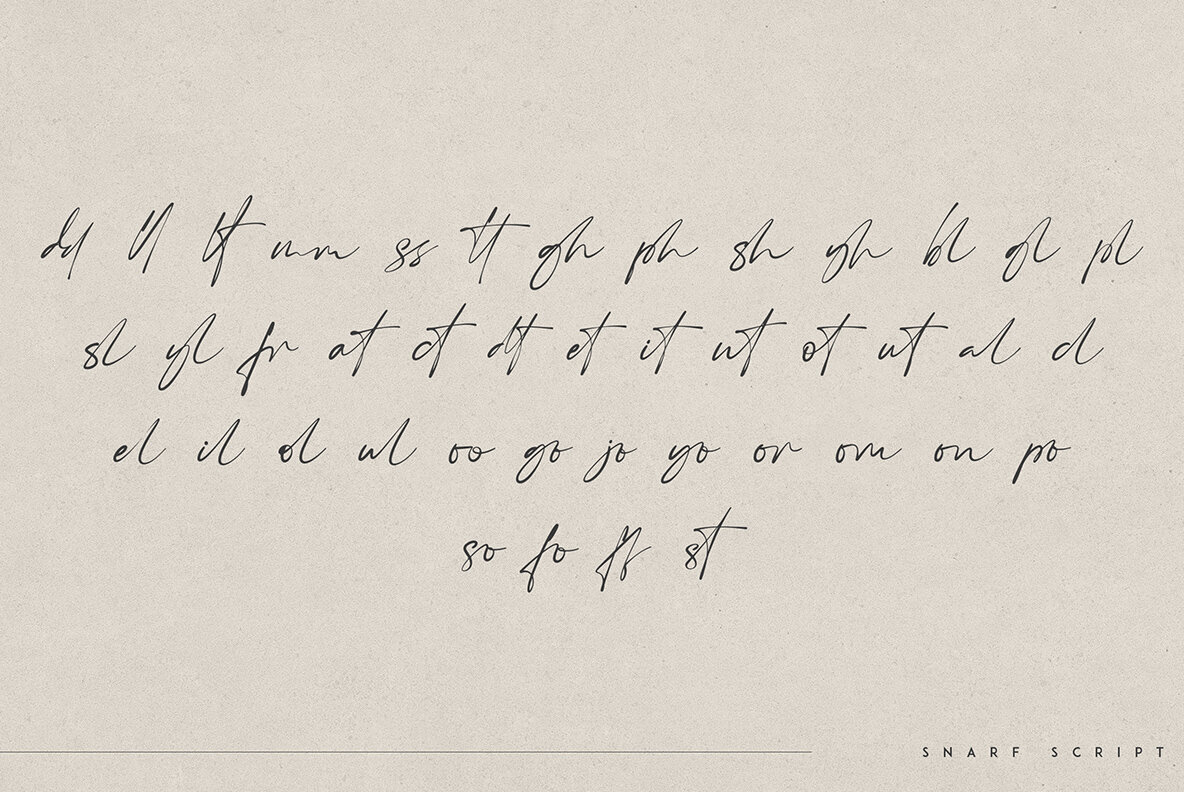 dd ll lt mm ss tt gh ph sh yh bl gl pl
sl yl fr at ct dt et it nt ot ut al cl
el il ol ul oo go jo yo or om on po
so fo ff st
SNARF SCRIPT